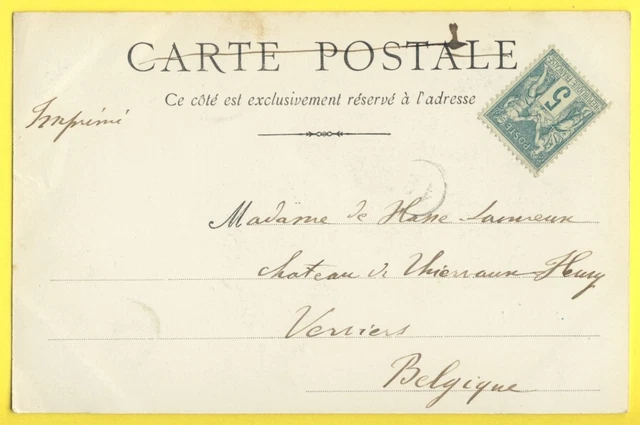 CARTE POSTALE
Ce côté est exclusivement réservé à l'adresse
Imprimé
POSTE
5
Madame de Hasse
Chateau de Heusy
Verviers
Belgique